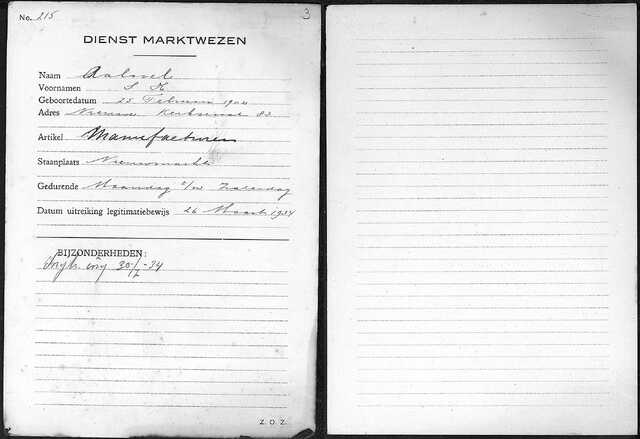 No. 215
3
DIENST MARKTWEZEN
Naam Aalsvel
Voornamen S K
Geboortedatum 25 Februari 1900
Adres Nieuwe Kerkstraat 83
Artikel Manufacturen
Staanplaats Nieuwmarkt
Gedurende Maandag t/m Zaterdag
Datum uitreiking legitimatiebewijs 26 Maart 1934
BIJZONDERHEDEN:
30/7-34
Z. O. Z.